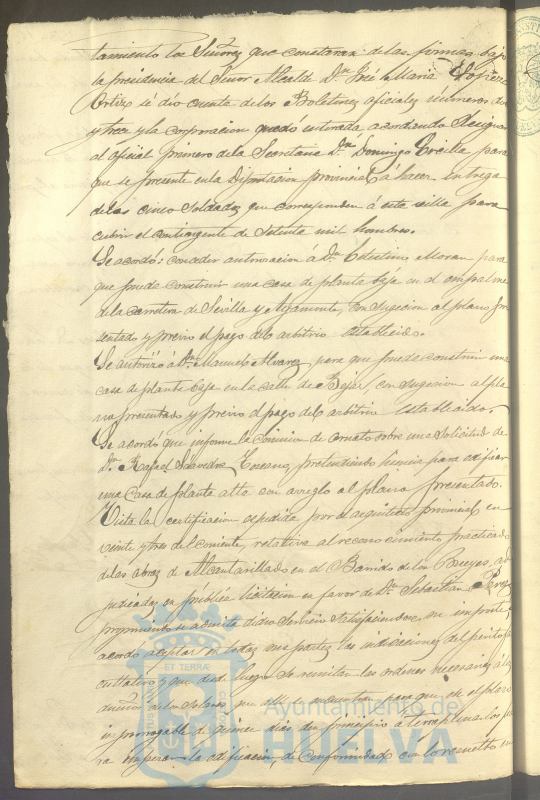 tamiento los Señores que constaran de las firmas bajo
la presidencia del Señor Alcalde Dn José Maria
Ortiz se dió cuenta de los Boletines oficiales números dos
y trece y la corporacion quedó enterada, acordando designar
al oficial primero de la Secretaria Dn Domingo para
que se presente en la Diputacion provincial á hacer entrega
de los cinco Soldados que corresponden á esta villa para
cubrir el contingente de setenta mil hombres.
Se acordó: conceder autorizacion á Dn Celestino Moran para
que pueda construir una casa de planta baja en el empalme
de la carretera de Sevilla y Ayamonte, con sugecion al plano pre
sentado y previo el pago del arbitrio establecido.
Se autorizó á Dn Manuel Alvarez, para que pueda construir una
casa de planta baja en la calle de Bejar, con sugecion al pla
no presentado y previo el pago del arbitrio establecido.
Se acordó que informe la Comision de ornato sobre una Solicitud de
Dn Rafael Saavedra pretendiendo licencia para edificar
una casa de planta alta con arreglo al plano presentado.
Vista la certificacion espedida por el arquitecto provincial en
veinte y tres del corriente, relativa al reconocimiento practicado
de las obras de Alcantarillado en el Barrido de los ad
judicadas en publica licitacion en favor de Dn Sebastian Perez
proponiendo se admita dicho servicio satisfaciendose su importe,
acordó aceptar en todas sus partes las indicaciones del perito fa
cultativo y que desde luego se remitan las ordenes necesarias á los
dueños de los solares que alli se encuentran para que en el plazo
improrogable de quince dias den principio á terraplenarlos
ra empezar la edificacion, de conformidad con lo resuelto en
ET TERRÆ
Ayuntamiento de
HUELVA